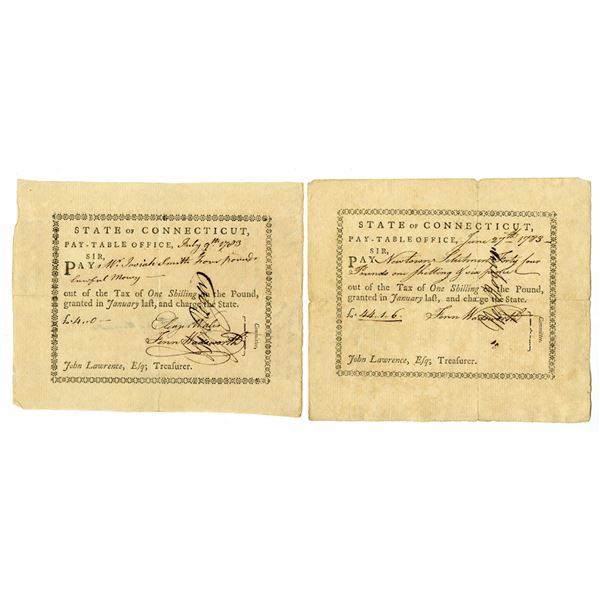 STATE OF CONNECTICUT,
PAY-TABLE OFFICE, July 9th 1783
SIR,
PAY Mr Josiah Smith Four pounds
Lawful Money
out of the Tax of One Shilling the Pound,
granted in January last, and charge the State.
£4..0
Fenn Wadsworth
Committee.
John Lawrence, Esq; Treasurer.
STATE OF CONNECTICUT,
PAY-TABLE OFFICE, June 27th 1783
SIR,
PAY Newtown Forty four
Pounds one shilling & six pence
out of the Tax of One Shilling the Pound,
granted in January last, and charge the State.
£44.1.6
Fenn Wadsworth
Committee.
John Lawrence, Esq; Treasurer.